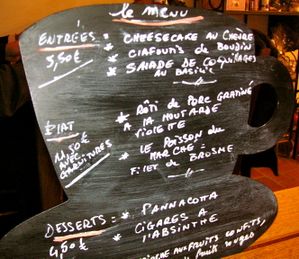 le menu
ENTRÉES = * CHEESECAKE AU CHÈVRE
5,50€ * CLAFOUTIS de BOUDIN
* SALADE DE COQUILLAGES
AU BASILIC
* RÔTI de PORC GRATINÉ
A LA MOUTARDE
VIOLETTE
PLAT
11,50€
AVEC
GARNITURES
* LE POISSON du
MARCHÉ =
FILET de BROSME
DESSERTS = * PANNACOTTA
4,50€ * CIGARES A
L'ABSINTHE
AUX FRUITS CONFITS,
fruits rouges